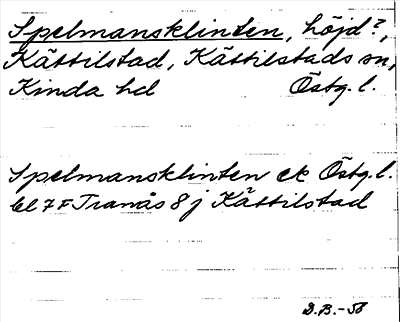 Spelmansklinten, höjd?,
Kättilstad, Kättilstads sn,
Kinda hd Östg. l.
Spelmansklinten ek Östg. l.
bl 7 F Tranås 8 j Kättilstad
D.B.-58